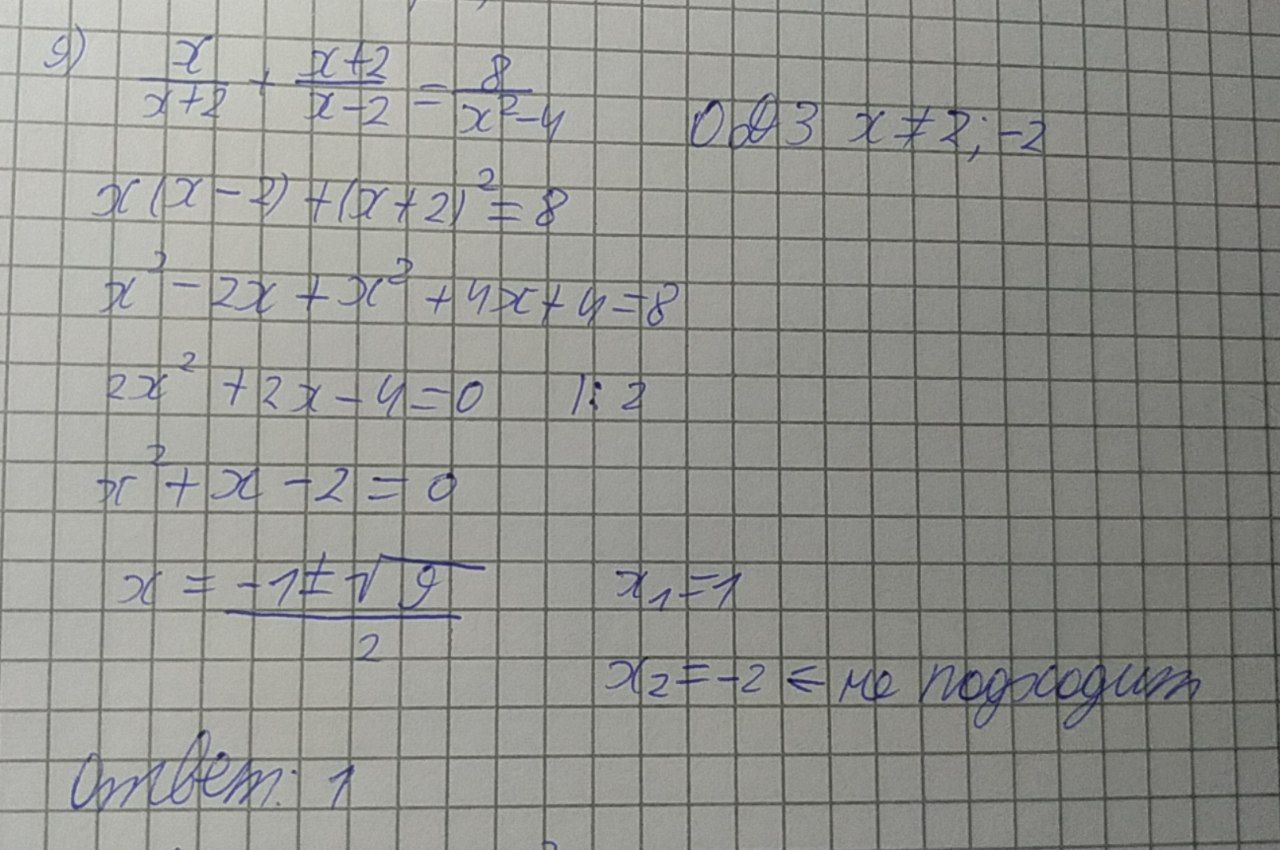 9) x/(x+2) + (x+2)/(x-2) = 8/(x²-4) ОДЗ x≠2; -2
x(x-2)+(x+2)²=8
x²-2x+x²+4x+4=8
2x²+2x-4=0 |:2
x²+x-2=0
x = (-1±√9)/2 x₁=1
x₂=-2 ⇐ не подходит
Ответ: 1